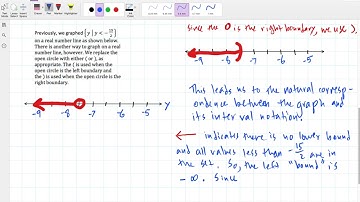 Previously, we graphed {y | y < -15/2}
on a real number line as shown below.
There is another way to graph on a real
number line, however. We replace the
open circle with either ( or ), as
appropriate. The ( is used when the
open circle is the left boundary and
the ) is used when the open circle is the
right boundary.
-9 -8 -7 -6 -5 y
since the O is the right boundary, we use ).
-9 -8 -7 -6 -5
This leads us to the natural corresp-
ondence between the graph and
its interval notation.
← indicates there is no lower bound
and all values less than -15/2 are in
the set. So, the left "bound" is
-∞. Since